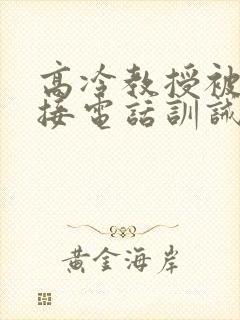 高冷教授被
接電話訓誡
黃金海岸